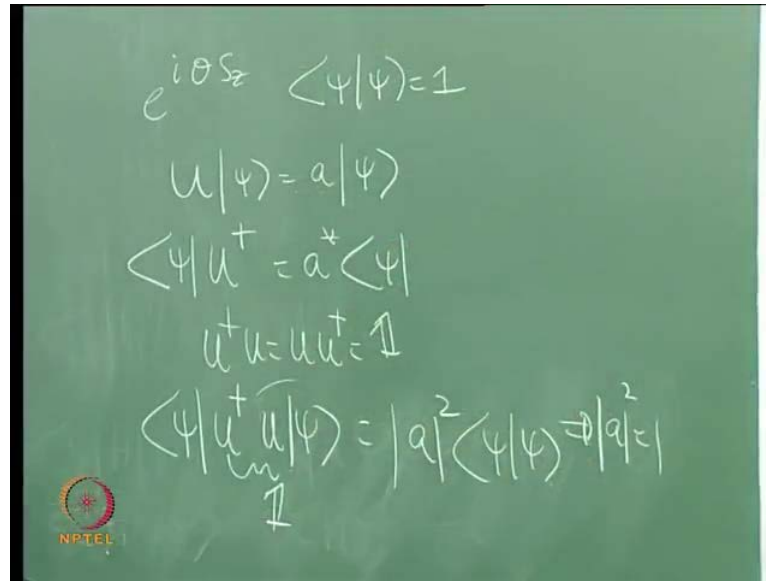 e^{iθS_z} ⟨ψ|ψ⟩=1
U|ψ⟩=a|ψ⟩
⟨ψ|U^†=a^*⟨ψ|
U^†U=UU^†=𝟙
⟨ψ|U^†U|ψ⟩=|a|^2⟨ψ|ψ⟩⇒|a|^2=1
𝟙
NPTEL